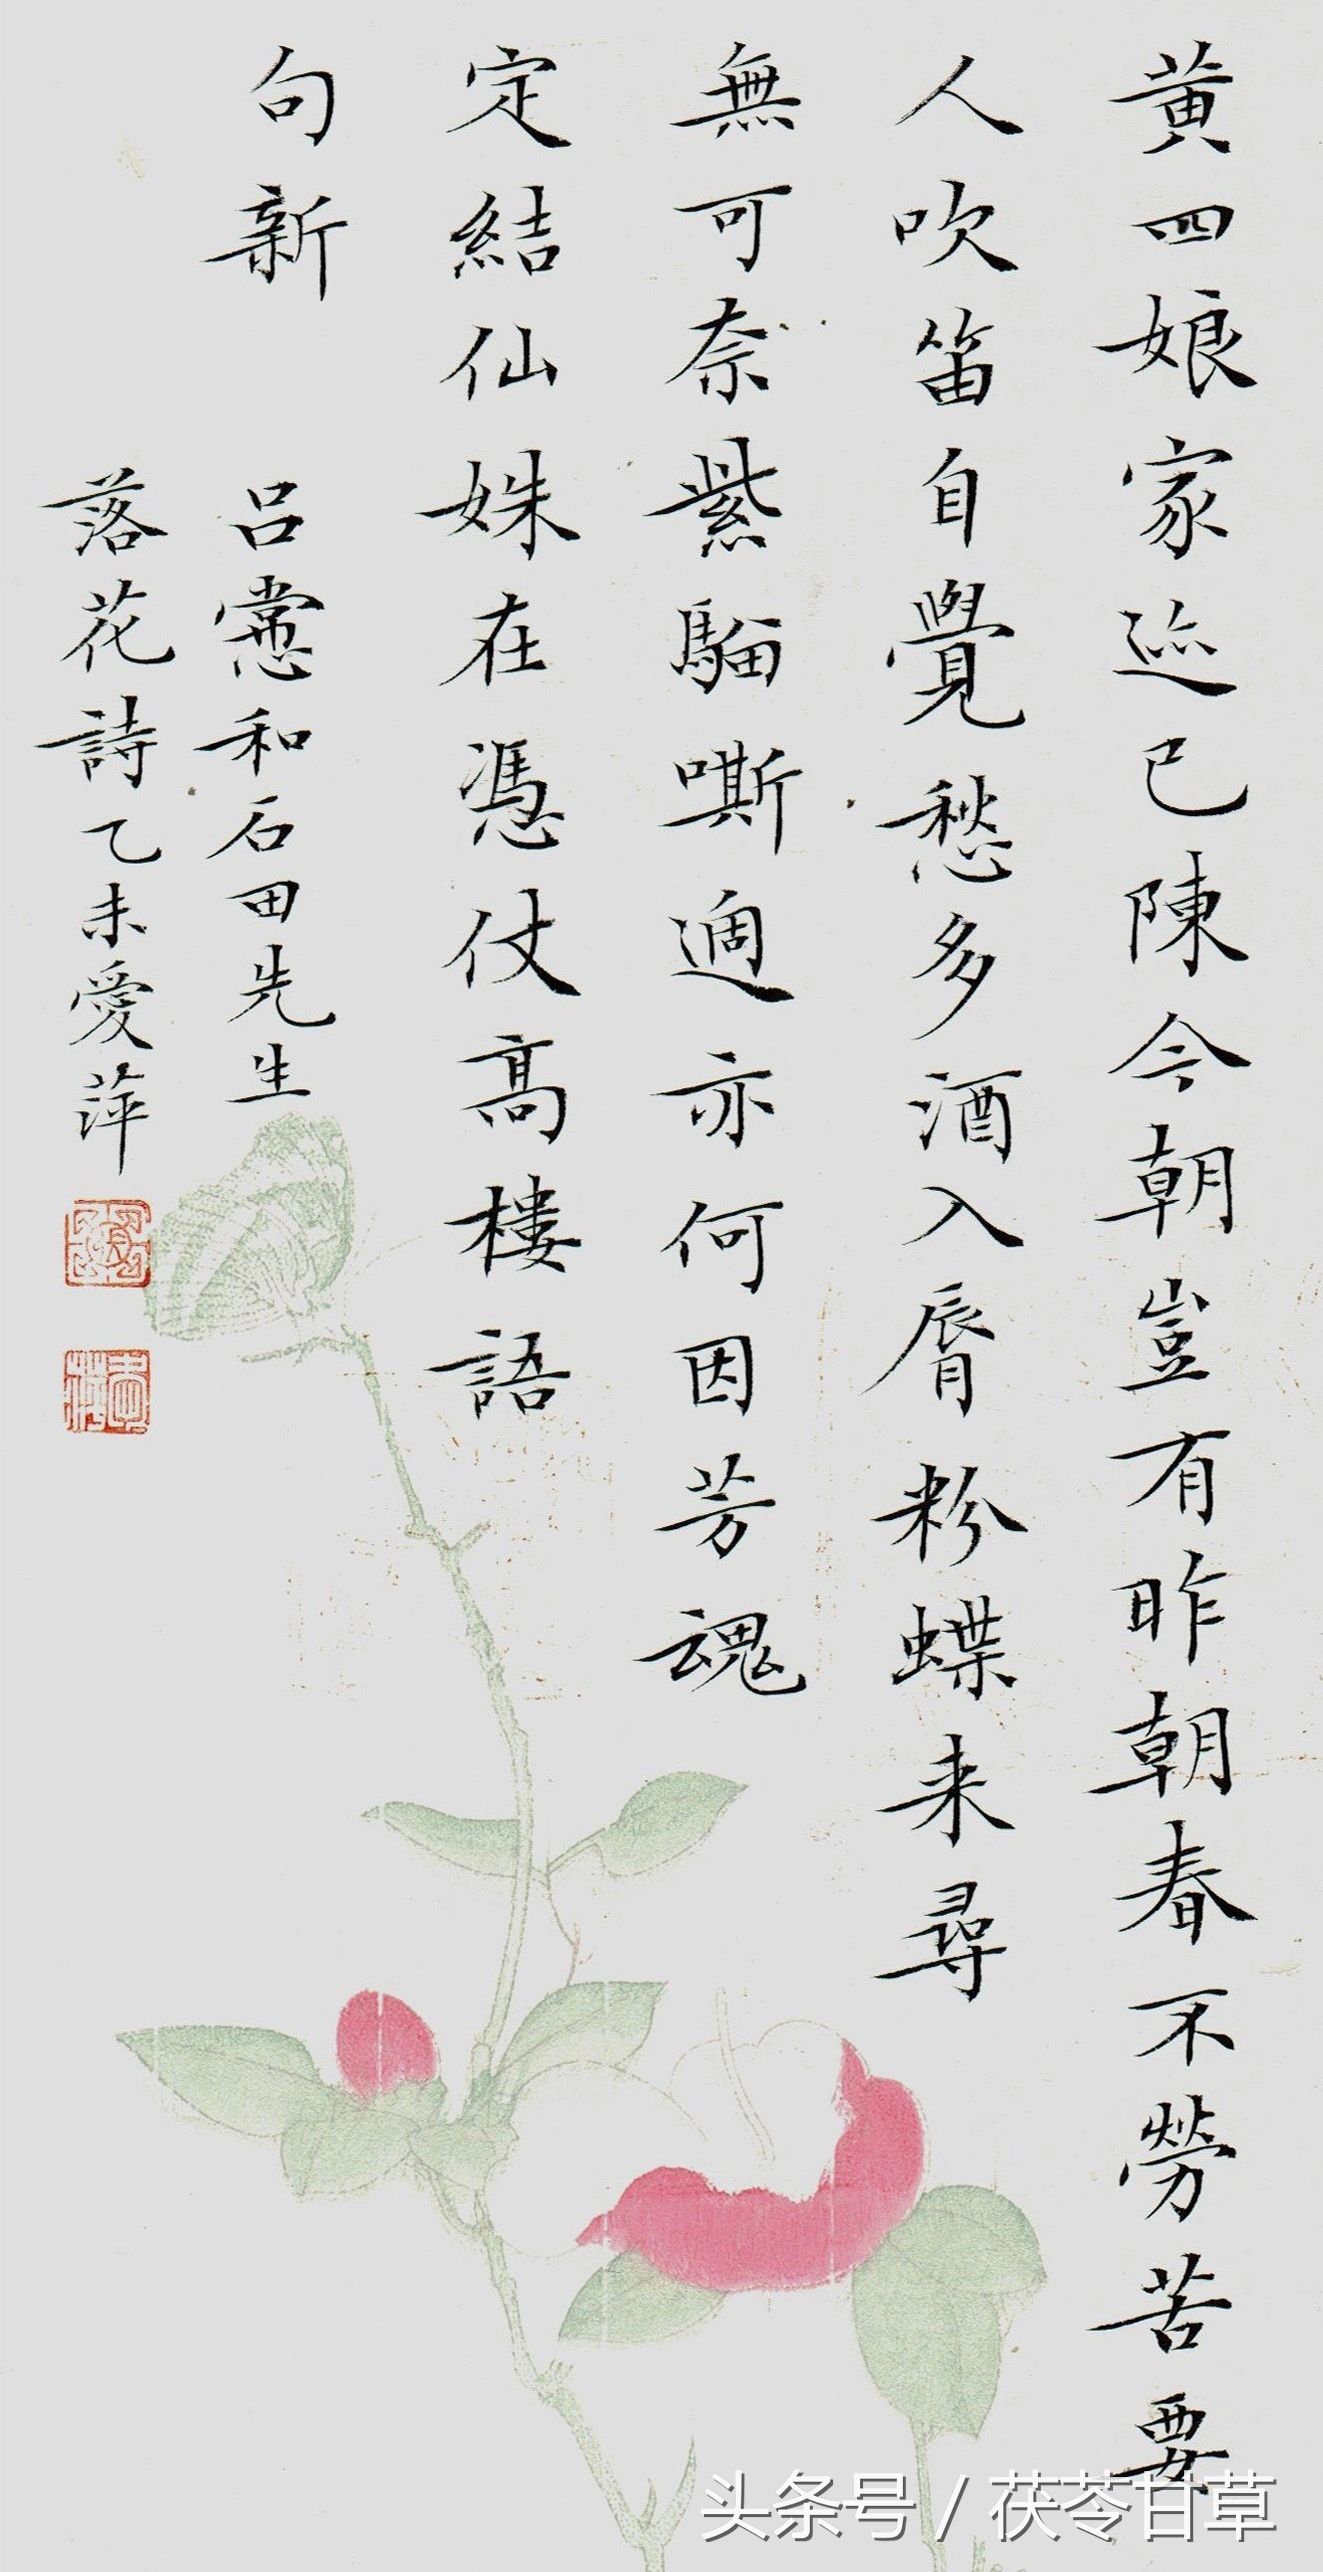 黄四娘家迹已陳今朝豈有昨朝春不勞苦要
人吹笛自覺愁多酒入脣粉蝶来尋
無可奈紫騮嘶過亦何因芳魂
定結仙姝在憑仗高樓語
句新
呂㦂和石田先生
落花詩乙未愛萍
头条号 / 茯苓甘草